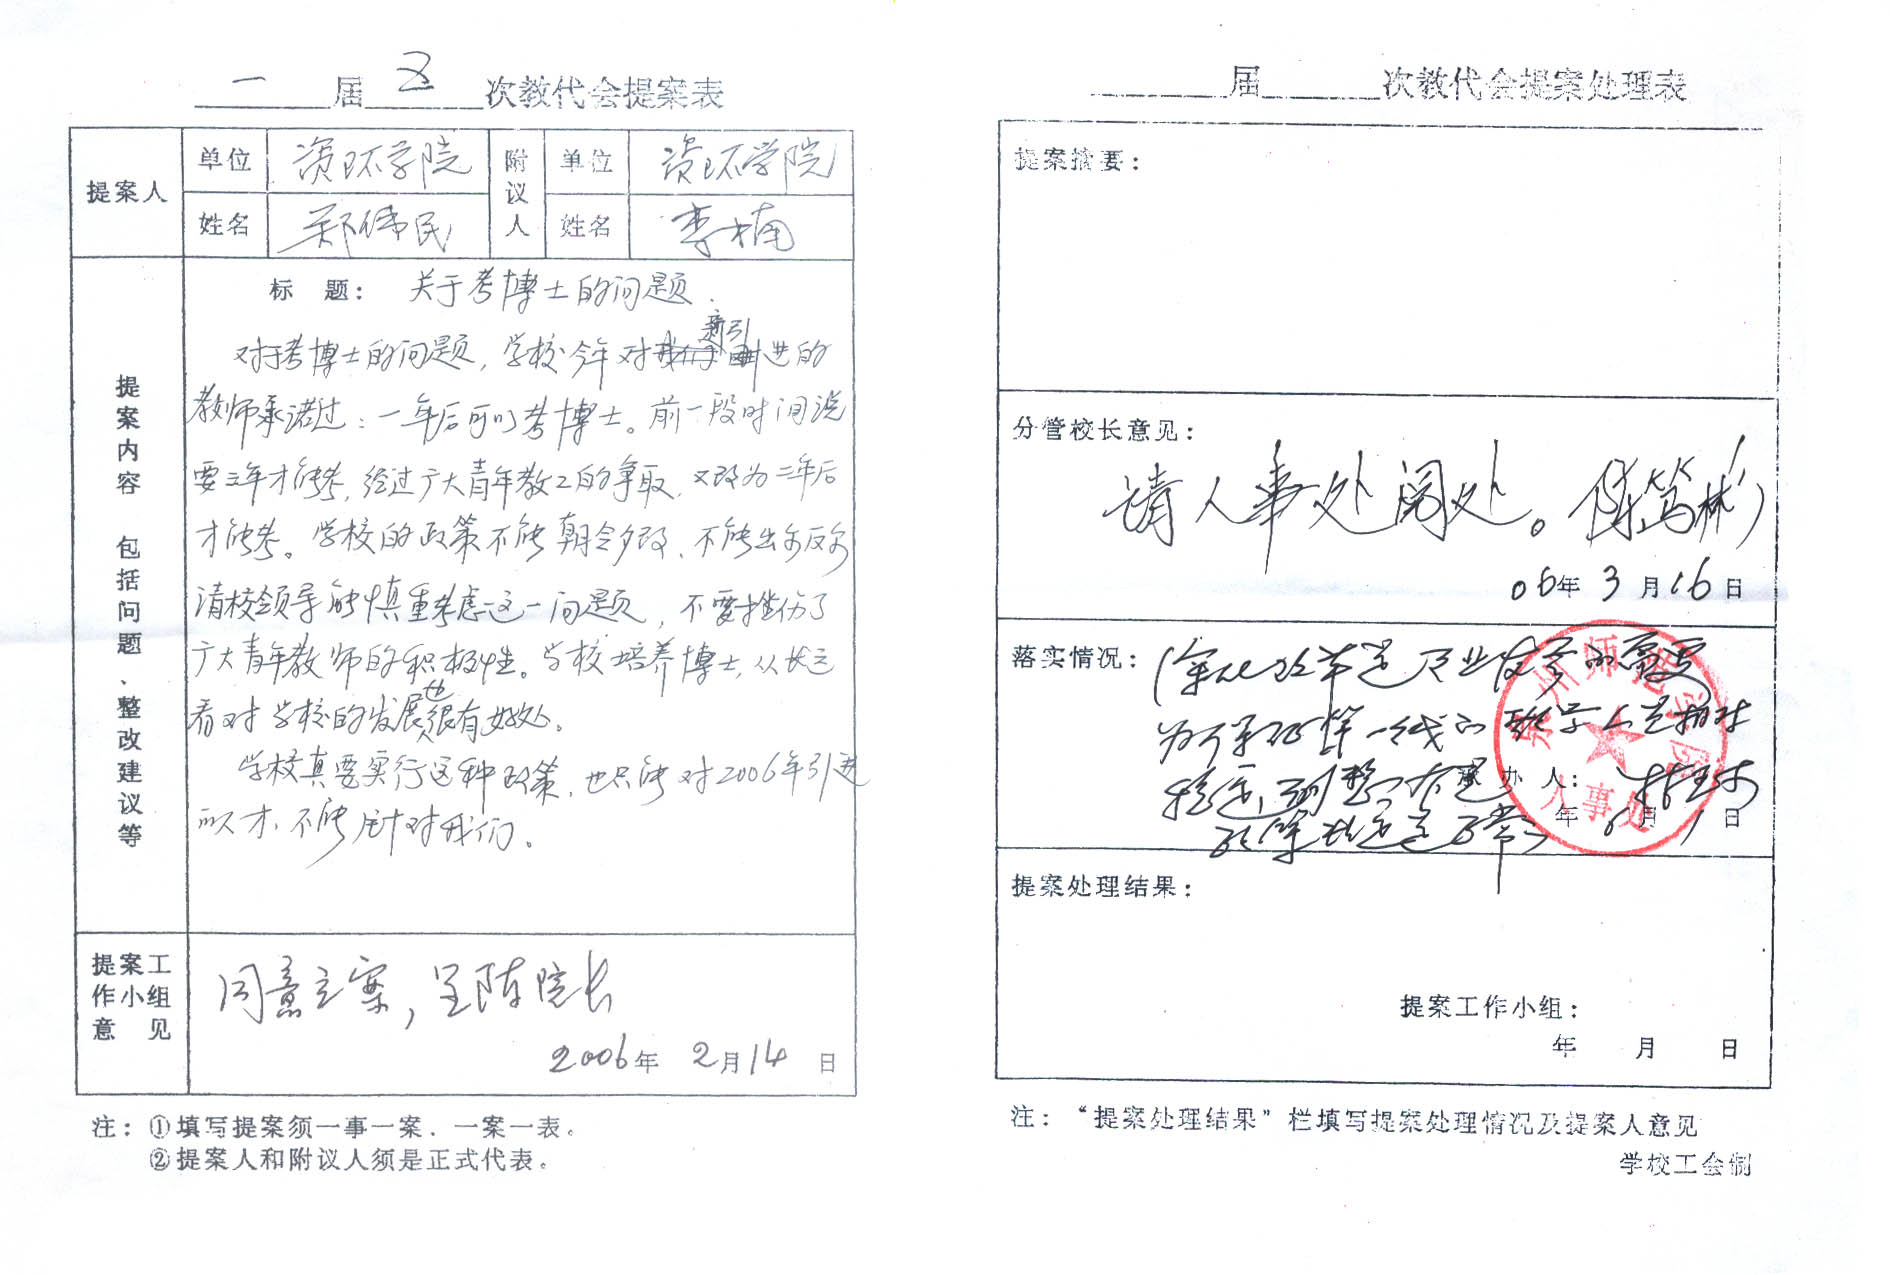 一届五次教代会提案表
提案人
单位 资环学院
附议人
单位 资环学院
姓名 郑伟民
姓名 李楠
提案内容 包括问题、整改建议等
标 题： 关于考博士的问题.
对于考博士的问题，学校今年对新引进的
教师承诺过：一年后可以考博士。前一段时间说
要三年才能考，经过广大青年教工的争取，又改为二年后
才能考。学校的政策不能朝令夕改、不能出尔反尔
请校领导能慎重考虑这一问题，不要挫伤了
广大青年教师的积极性。学校培养博士，从长远
看对学校的发展也很有好处。
学校真要实行这种政策，也只能对2006年引进
的人才，不能针对我们。
提案工
作小组
意 见
同意立案，呈陈院长
2006年 2月14日
注：①填写提案须一事一案、一案一表。
②提案人和附议人须是正式代表。
届 次教代会提案处理表
提案摘要：
分管校长意见：
请人事处阅处。陈笃彬
06年3月16日
落实情况：
深化改革是 发展的需要
为了保证 第一线的教学人员相对
稳定，调整
政策 是正常
承办人：
年6月1日
泉州师范学院
人事处
提案处理结果：
提案工作小组：
年 月 日
注：“提案处理结果”栏填写提案处理情况及提案人意见
学校工会制